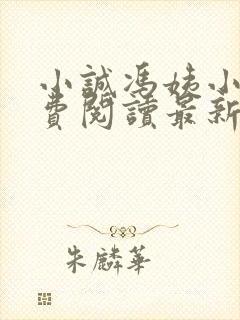 小誠馮姨小
費閱讀最新
朱麟華